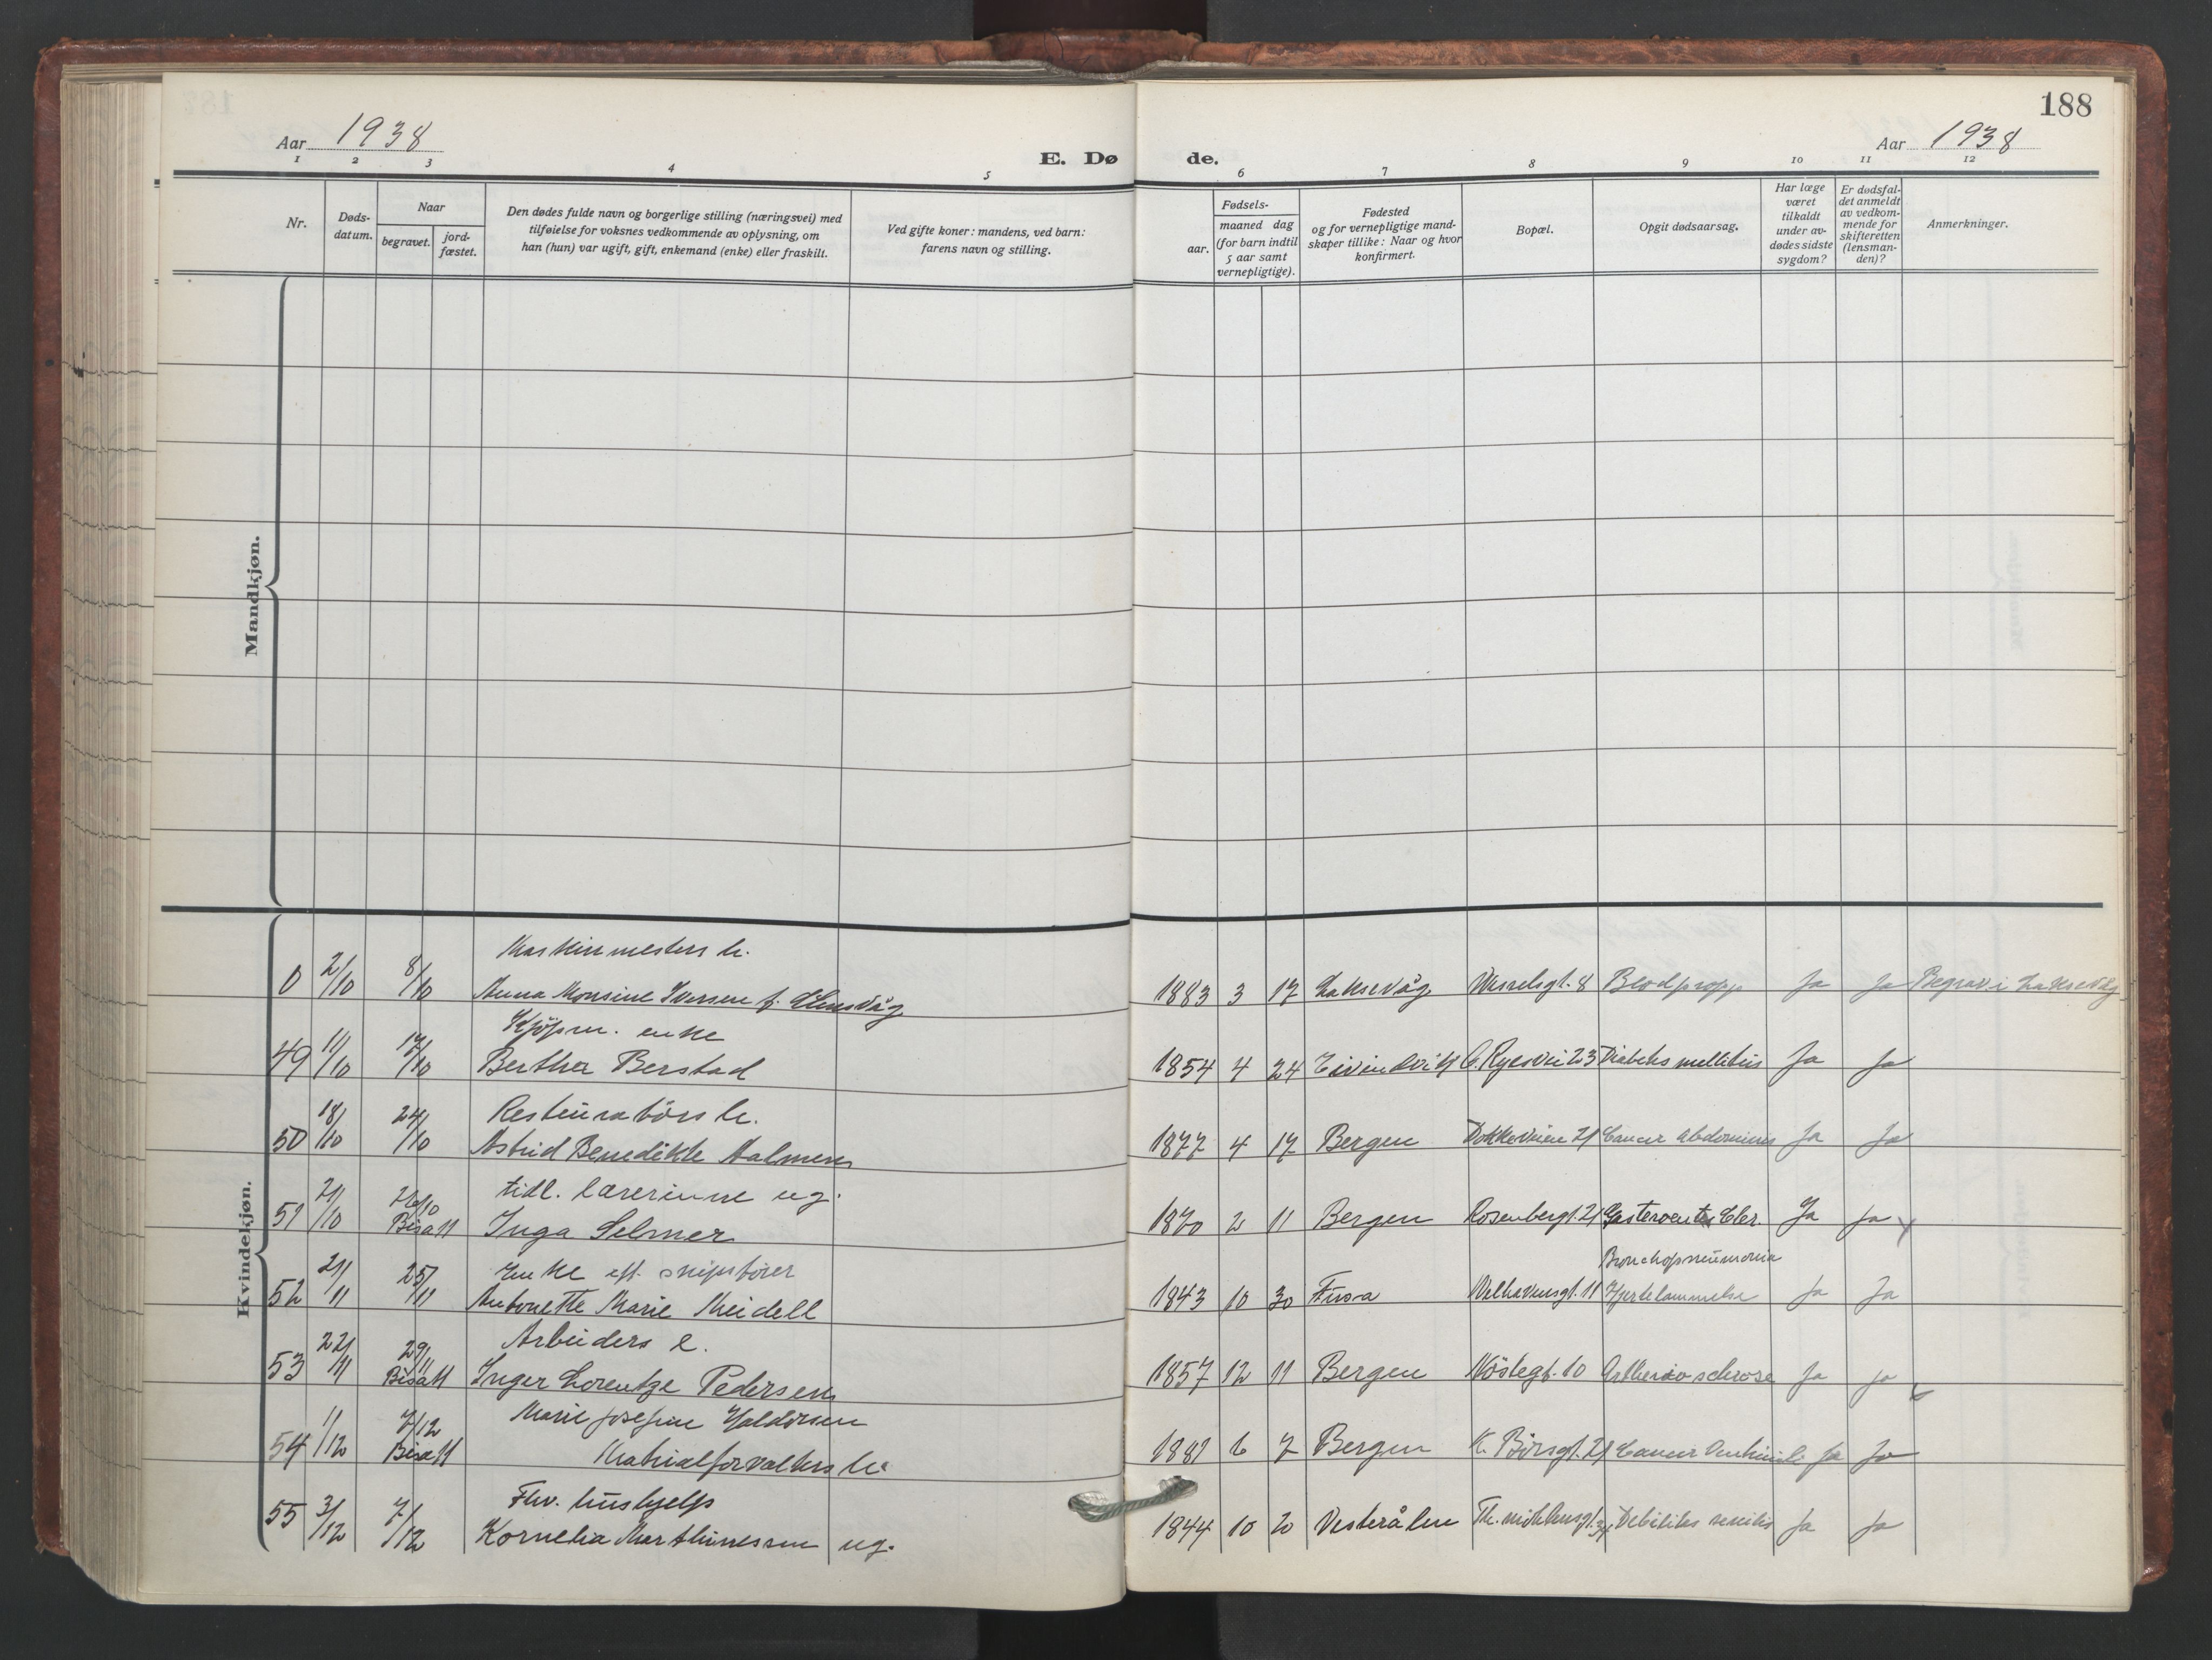 188
Aar 1938
Aar 1938
E. Dø de.
1 2 3 4 5 6 7 8 9 10 11 12
Nr.
Døds-
datum.
Naar
begravet.
jord-
fæstet.
Den dødes fulde navn og borgerlige stilling (næringsvei) med
tilføielse for voksnes vedkommende av oplysning, om
han (hun) var ugift, gift, enkemand (enke) eller fraskilt.
Ved gifte koner: mandens, ved barn:
farens navn og stilling.
Fødsels-
aar.
maaned dag
(for barn indtil
5 aar samt
vernepligtige).
Fødested
og for vernepligtige mand-
skaper tillike: Naar og hvor
konfirmert.
Bopæl.
Opgit dødsaarsag.
Har læge
været
tilkaldt
under av-
dødes sidste
sygdom?
Er dødsfal-
det anmeldt
av vedkom-
mende for
skifteretten
(lensman-
den)?
Anmerkninger.
Mandkjøn.
Kvindekjøn.
Maskinmesters h.
0 2/10 8/10 Anna Monsine Iversen f. 1883 3 17 Laksevåg Wesselsgt. 8 Blodpropp Ja Ja Begrav. i Laksevåg
Kjöpm. enke
49 11/10 17/10 Berthe Berstad 1854 4 24 Eivindvik Ryesvei 23 Diabetes mellitus Ja Ja
Restauratörs h.
50 18/10 24/10 Astrid Benedikte Halmers 1877 4 17 Bergen Dokkeveien 21 Cancer abdominis Ja Ja
tidl. lærerinne ug.
51 21/10 26/10 Bisatt Inga Selmer 1870 2 11 Bergen Rosenbergt. 21 Ja Ja
Enke eft. skipsfører Bronchopneumonia
52 21/11 25/11 Antonette Marie Meidell 1843 10 30 Fusa Welhavensgt. 11 Hjertelammelse Ja Ja
Arbeiders e.
53 22/11 29/11 Bisatt Inger Lorentze Pedersen 1857 12 11 Bergen Nöstegt. 10 Artheriosclerose Ja Ja
Marie Josefine Haldorsen
54 1/12 7/12 Bisatt Matrialforvalters h. 1881 6 7 Bergen K. Börsgt. 21 Cancer Ventriculi Ja Ja
Fhv. hushjelp
55 3/12 7/12 Kornelia Marthinessen ug. 1844 10 20 Vesterålen Debilitas senilis Ja Ja